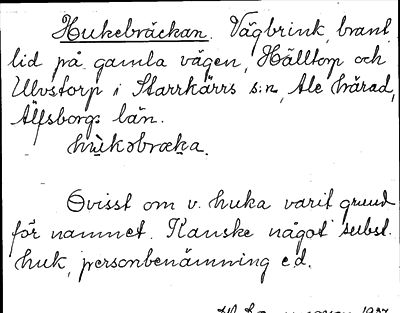 Hukebräckan. Vägbrink, brant
lid på gamla vägen, Hälltorp och
Ulvstorp i Starrkärrs s:n, Ale härad,
Älfsborgs län.
hùkəbræka.
Ovisst om v. huka varit grund
för namnet. Kanske något subst.
huk, personbenämning e.d.